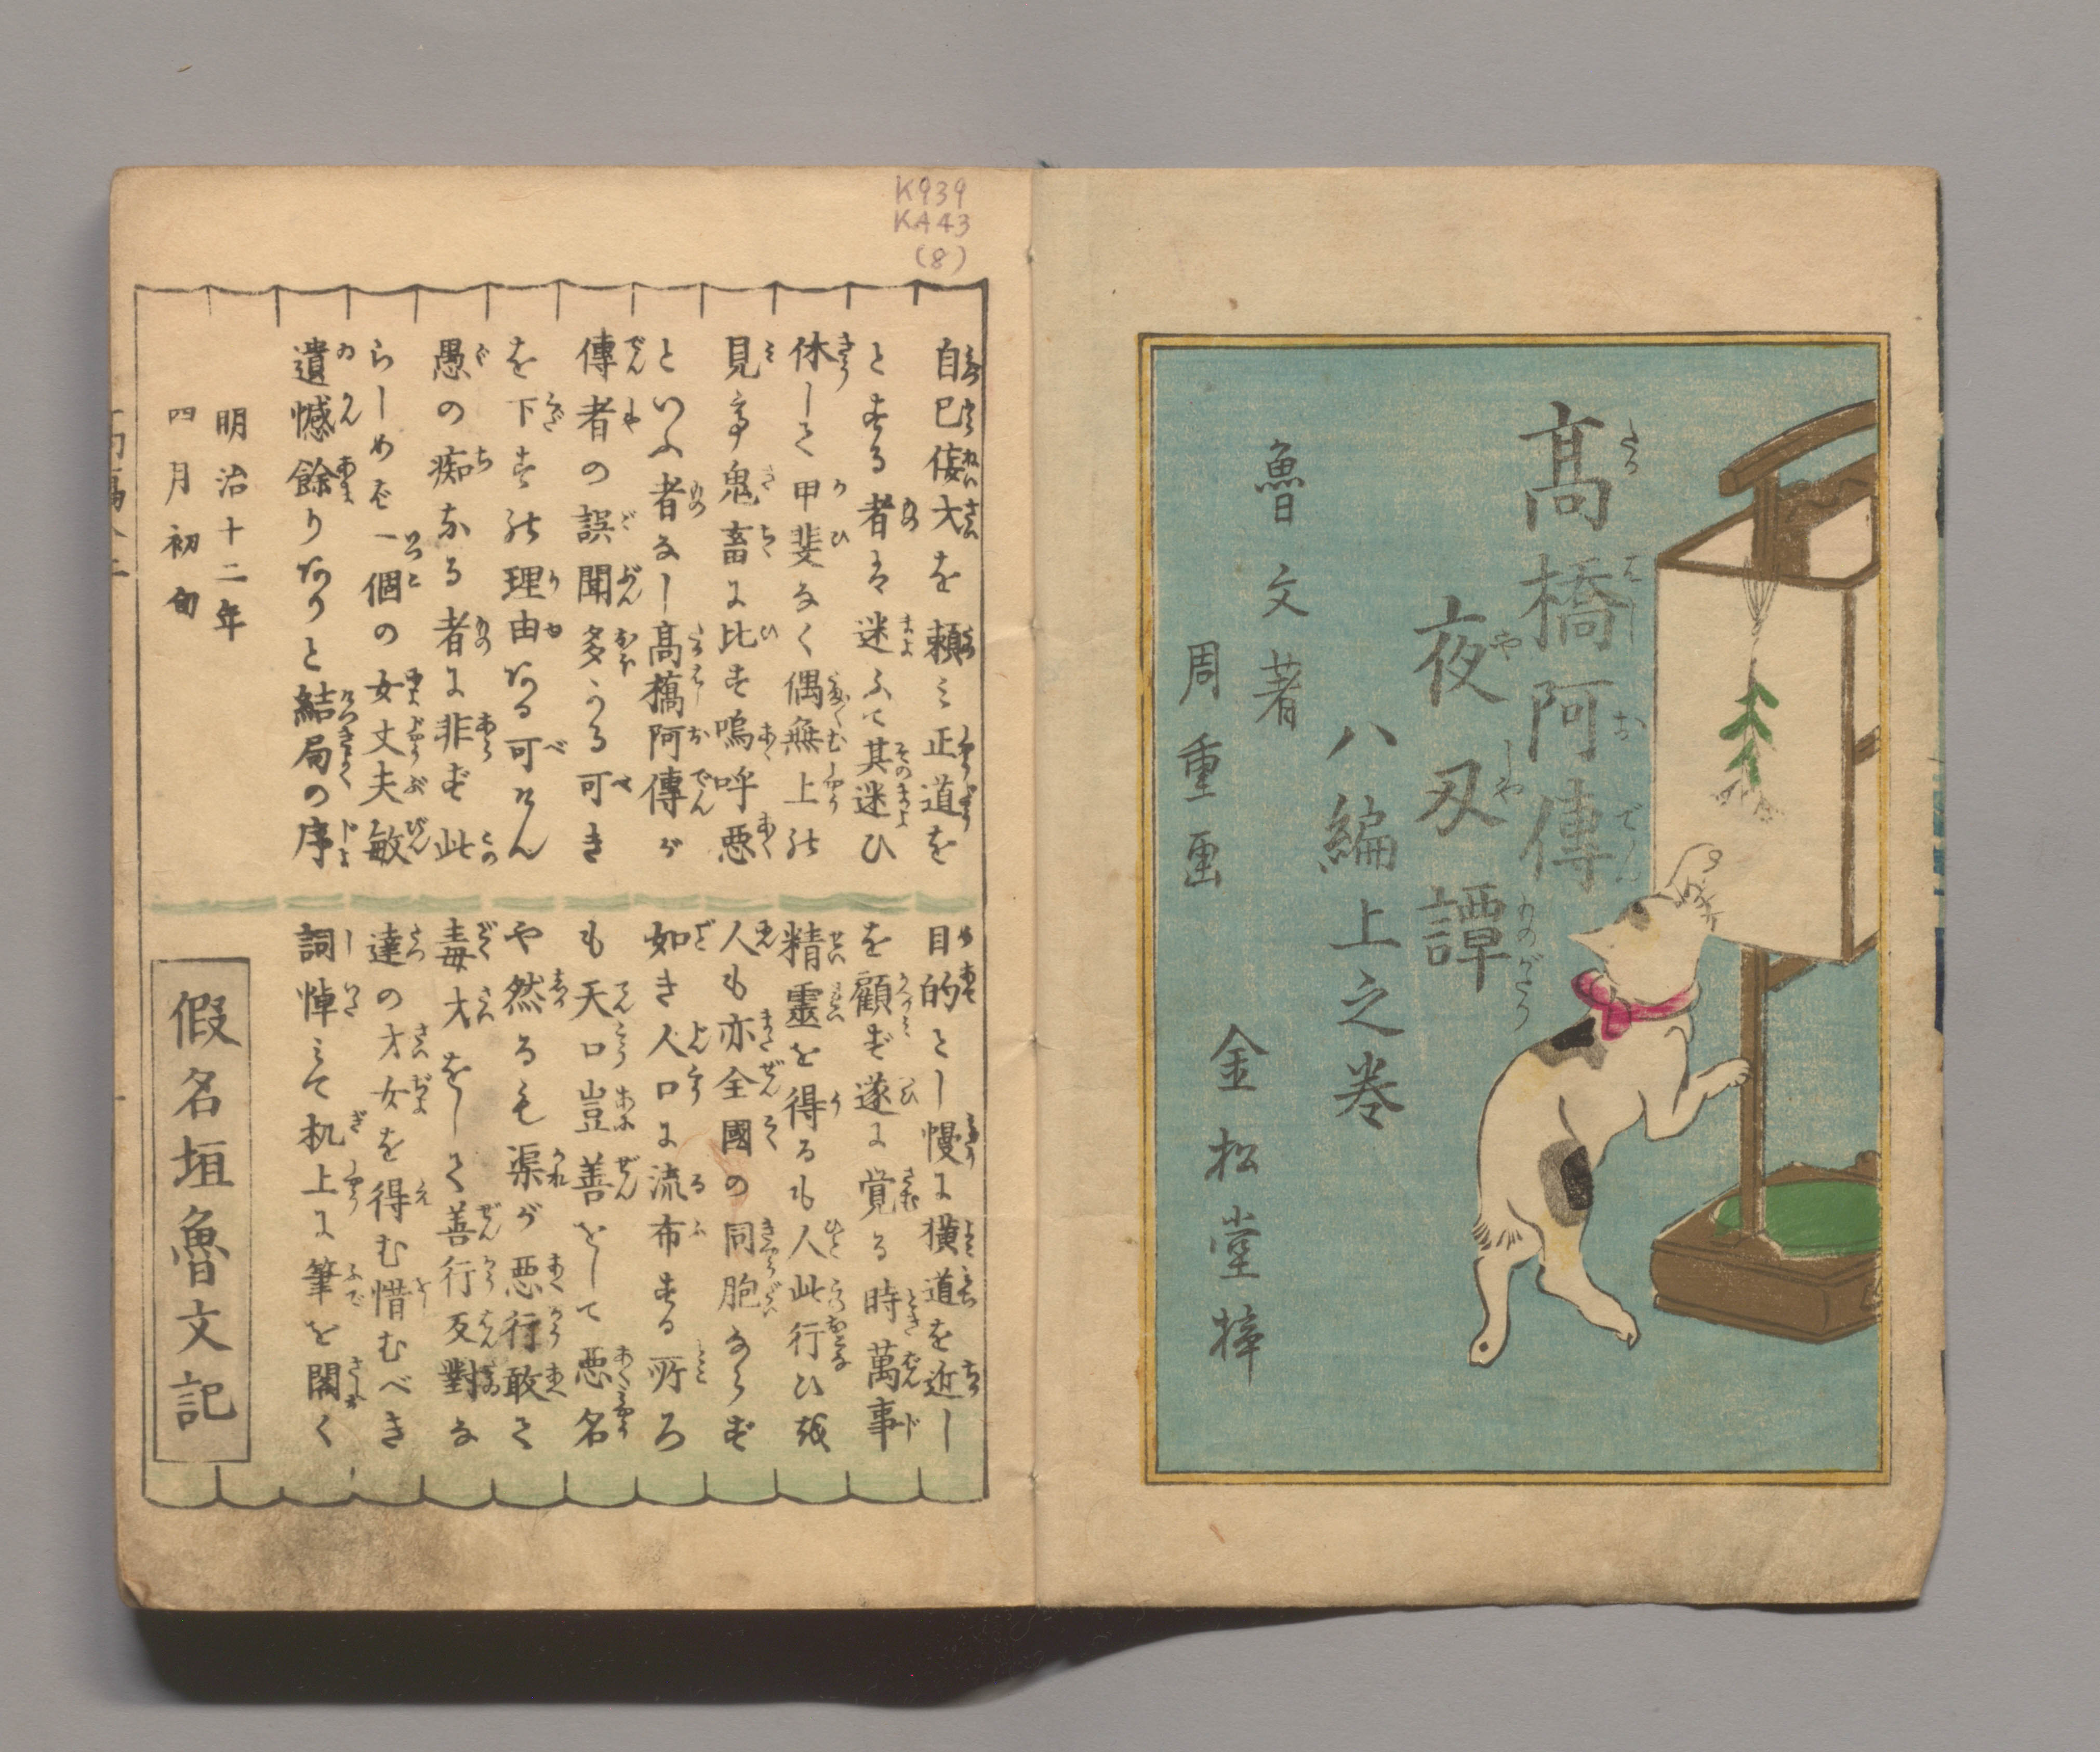 高橋阿傳
夜叉譚
八編上之巻
魯文著
周重画
金松堂梓
K939
KA43
(8)
自己侫才を頼ミ正道を
とする者は迷ふて其迷ひ
休して甲斐なく偶無上の
見亭鬼畜に比す嗚呼悪
といふ者なし高橋阿傳が
傳者の誤聞多かる可き
を下す理由ある可けん
愚の痴なる者に非ず此
らしめば一個の女丈夫敏
遺憾餘りありと結局の序
明治十二年
四月初旬
目的とし慢に横道を近し
を顧ず遂に覚る時萬事
精靈を得るも人此行ひ
人も亦全國の同胞ならず
如き人口に流布する所ろ
も天口豈善をして悪名
や然るも渠が悪行敢て
毒才をして善行反對な
達の才女を得む惜むべき
詞悼ミて机上に筆を閣く
假名垣魯文記